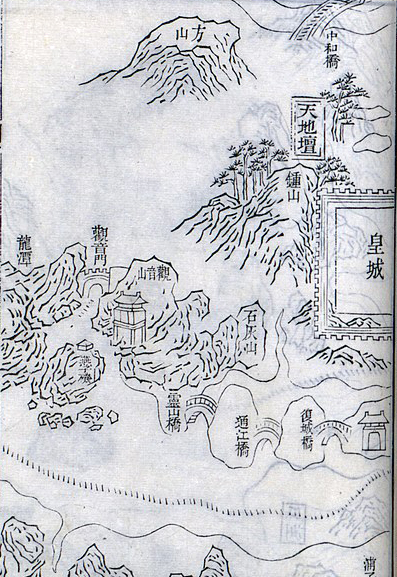 中和橋
方山
天地壇
鍾山
皇城
觀音門
龍潭
觀音山
石灰山
燕子磯
復城橋
通江橋
靈山橋
浦